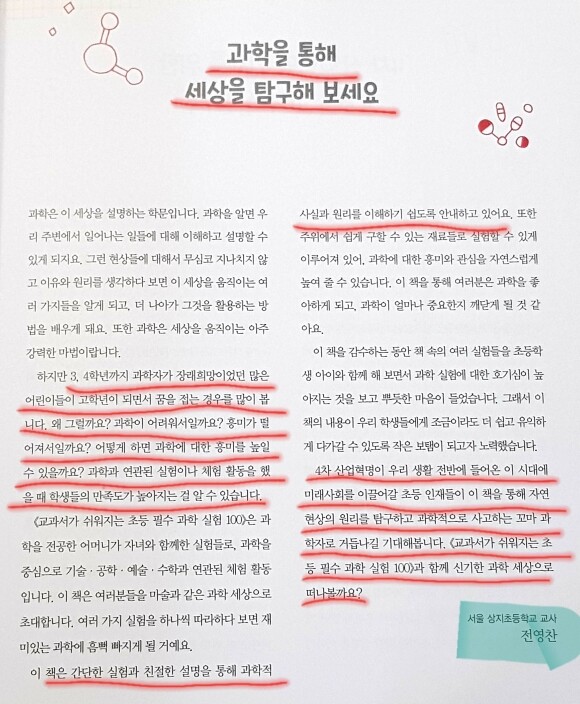 과학을 통해
세상을 탐구해 보세요
과학은 이 세상을 설명하는 학문입니다. 과학을 알면 우
리 주변에서 일어나는 일들에 대해 이해하고 설명할 수
있게 되지요. 그런 현상들에 대해서 무심코 지나치지 않
고 이유와 원리를 생각하다 보면 이 세상을 움직이는 여
러 가지들을 알게 되고, 더 나아가 그것을 활용하는 방
법을 배우게 돼요. 또한 과학은 세상을 움직이는 아주
강력한 마법이랍니다.
하지만 3, 4학년까지 과학자가 장래희망이었던 많은
어린이들이 고학년이 되면서 꿈을 접는 경우를 많이 봅
니다. 왜 그럴까요? 과학이 어려워서일까요? 흥미가 떨
어져서일까요? 어떻게 하면 과학에 대한 흥미를 높일
수 있을까요? 과학과 연관된 실험이나 체험 활동을 했
을 때 학생들의 만족도가 높아지는 걸 알 수 있습니다.
《교과서가 쉬워지는 초등 필수 과학 실험 100》은 과
학을 전공한 어머니가 자녀와 함께한 실험들로, 과학을
중심으로 기술·공학·예술·수학과 연관된 체험 활동
입니다. 이 책은 여러분들을 마술과 같은 과학 세상으로
초대합니다. 여러 가지 실험을 하나씩 따라하다 보면 재
미있는 과학에 흠뻑 빠지게 될 거예요.
이 책은 간단한 실험과 친절한 설명을 통해 과학적
사실과 원리를 이해하기 쉽도록 안내하고 있어요. 또한
주위에서 쉽게 구할 수 있는 재료들로 실험할 수 있게
이루어져 있어, 과학에 대한 흥미와 관심을 자연스럽게
높여 줄 수 있습니다. 이 책을 통해 여러분은 과학을 좋
아하게 되고, 과학이 얼마나 중요한지 깨닫게 될 것 같
아요.
이 책을 감수하는 동안 책 속의 여러 실험들을 초등학
생 아이와 함께 해 보면서 과학 실험에 대한 호기심이 높
아지는 것을 보고 뿌듯한 마음이 들었습니다. 그래서 이
책의 내용이 우리 학생들에게 조금이라도 더 쉽고 유익하
게 다가갈 수 있도록 작은 보탬이 되고자 노력했습니다.
4차 산업혁명이 우리 생활 전반에 들어온 이 시대에
미래사회를 이끌어갈 초등 인재들이 이 책을 통해 자연
현상의 원리를 탐구하고 과학적으로 사고하는 꼬마 과
학자로 거듭나길 기대해봅니다. 《교과서가 쉬워지는 초
등 필수 과학 실험 100》과 함께 신기한 과학 세상으로
떠나볼까요?
서울 상지초등학교 교사
전영찬